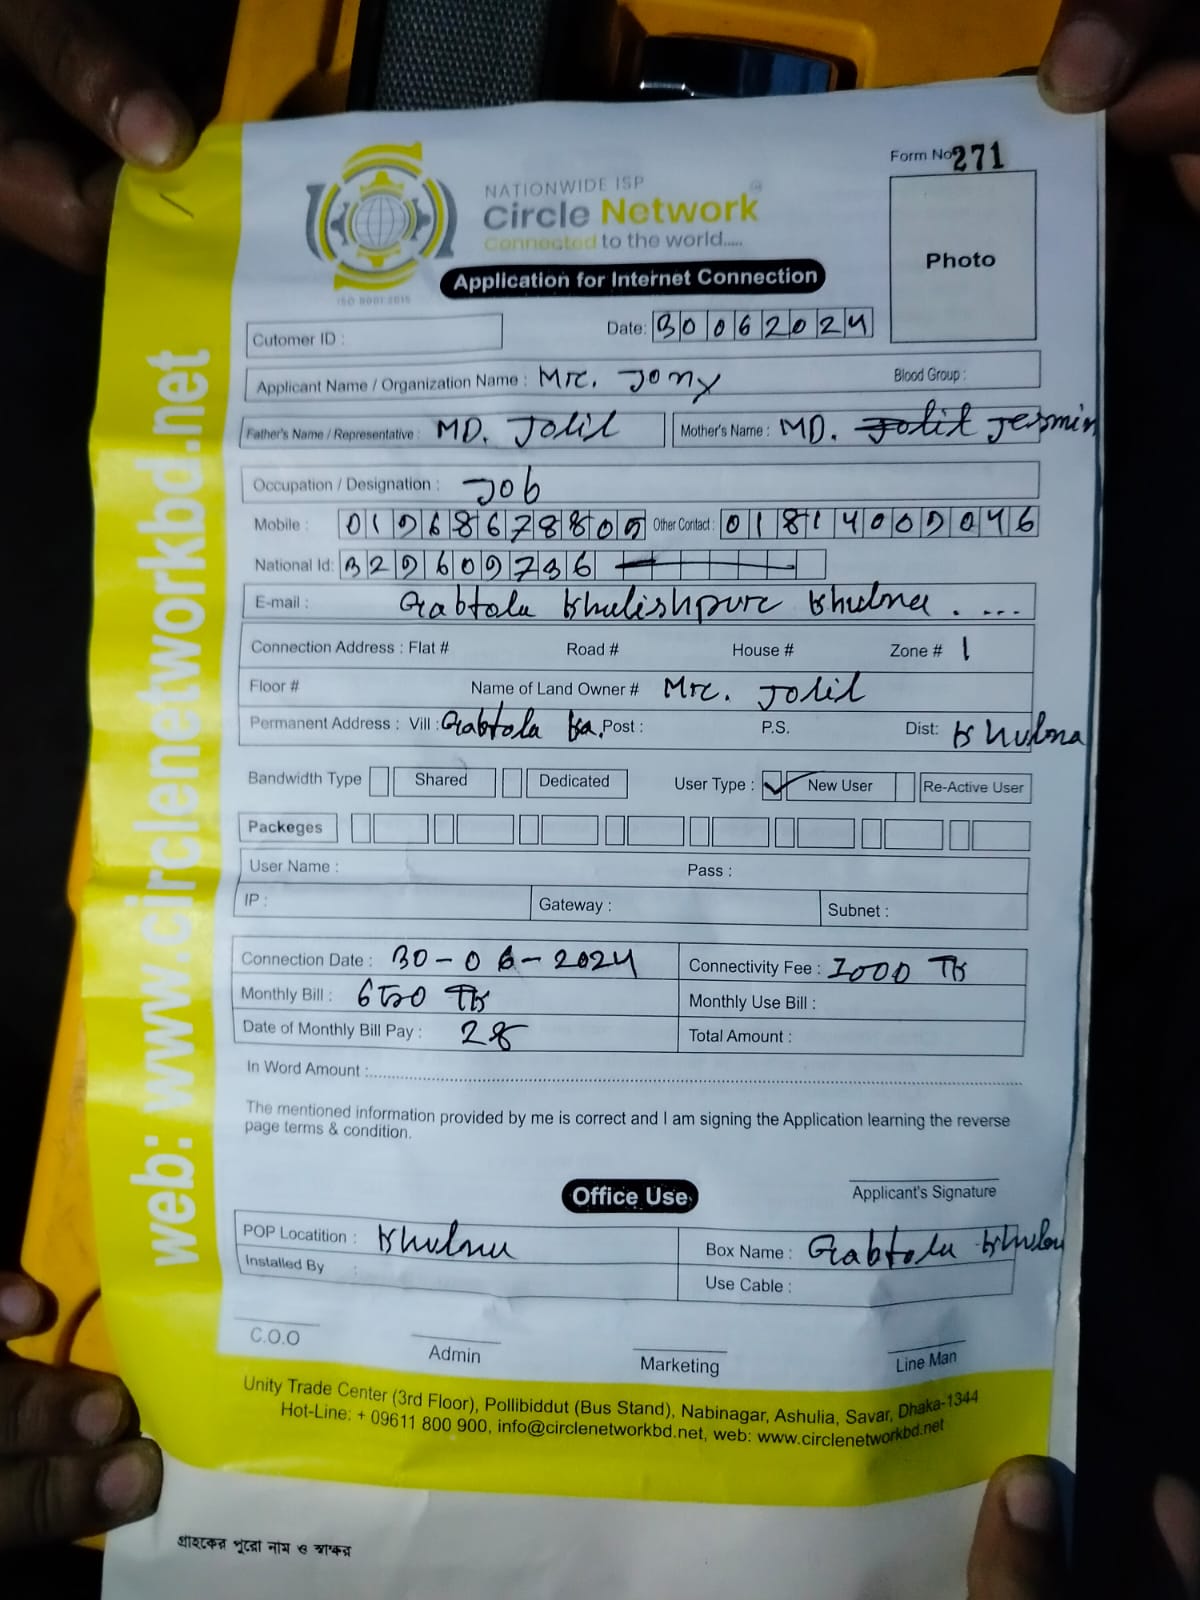 Form No 271
NATIONWIDE ISP
Circle Network
Connected to the world.....
ISO 9001:2015
Photo
Application for Internet Connection
Cutomer ID :
Date: 30062024
Applicant Name / Organization Name : Mrc. Jony Blood Group :
Father's Name / Representative : MD. Jolil Mother's Name : MD. Jolil Jesmin
Occupation / Designation : Job
Mobile : Other Contact :
National Id:
E-mail : Gabtola Khalishpure Khulna . ...
Connection Address : Flat # Road # House # Zone # 1
Floor # Name of Land Owner # Mrc. Jolil
Permanent Address : Vill : Gabtola Post : P.S. Dist: Khulna
Bandwidth Type Shared Dedicated User Type : New User Re-Active User
Packeges
User Name : Pass :
IP : Gateway : Subnet :
Connection Date : 30-06-2024 Connectivity Fee : 1000 Tk
Monthly Bill : Tk Monthly Use Bill :
Date of Monthly Bill Pay : 28 Total Amount :
In Word Amount :
The mentioned information provided by me is correct and I am signing the Application learning the reverse
page terms & condition.
Applicant's Signature
Office Use
POP Locatition : Khulna Box Name : Gabtola Khulna
Installed By : Use Cable :
C.O.O Admin Marketing Line Man
Unity Trade Center (3rd Floor), Pollibiddut (Bus Stand), Nabinagar, Ashulia, Savar, Dhaka-1344
Hot-Line: + 09611 800 900, info@circlenetworkbd.net, web: www.circlenetworkbd.net
web: www.circlenetworkbd.net
গ্রাহকের পুরো নাম ও স্বাক্ষর